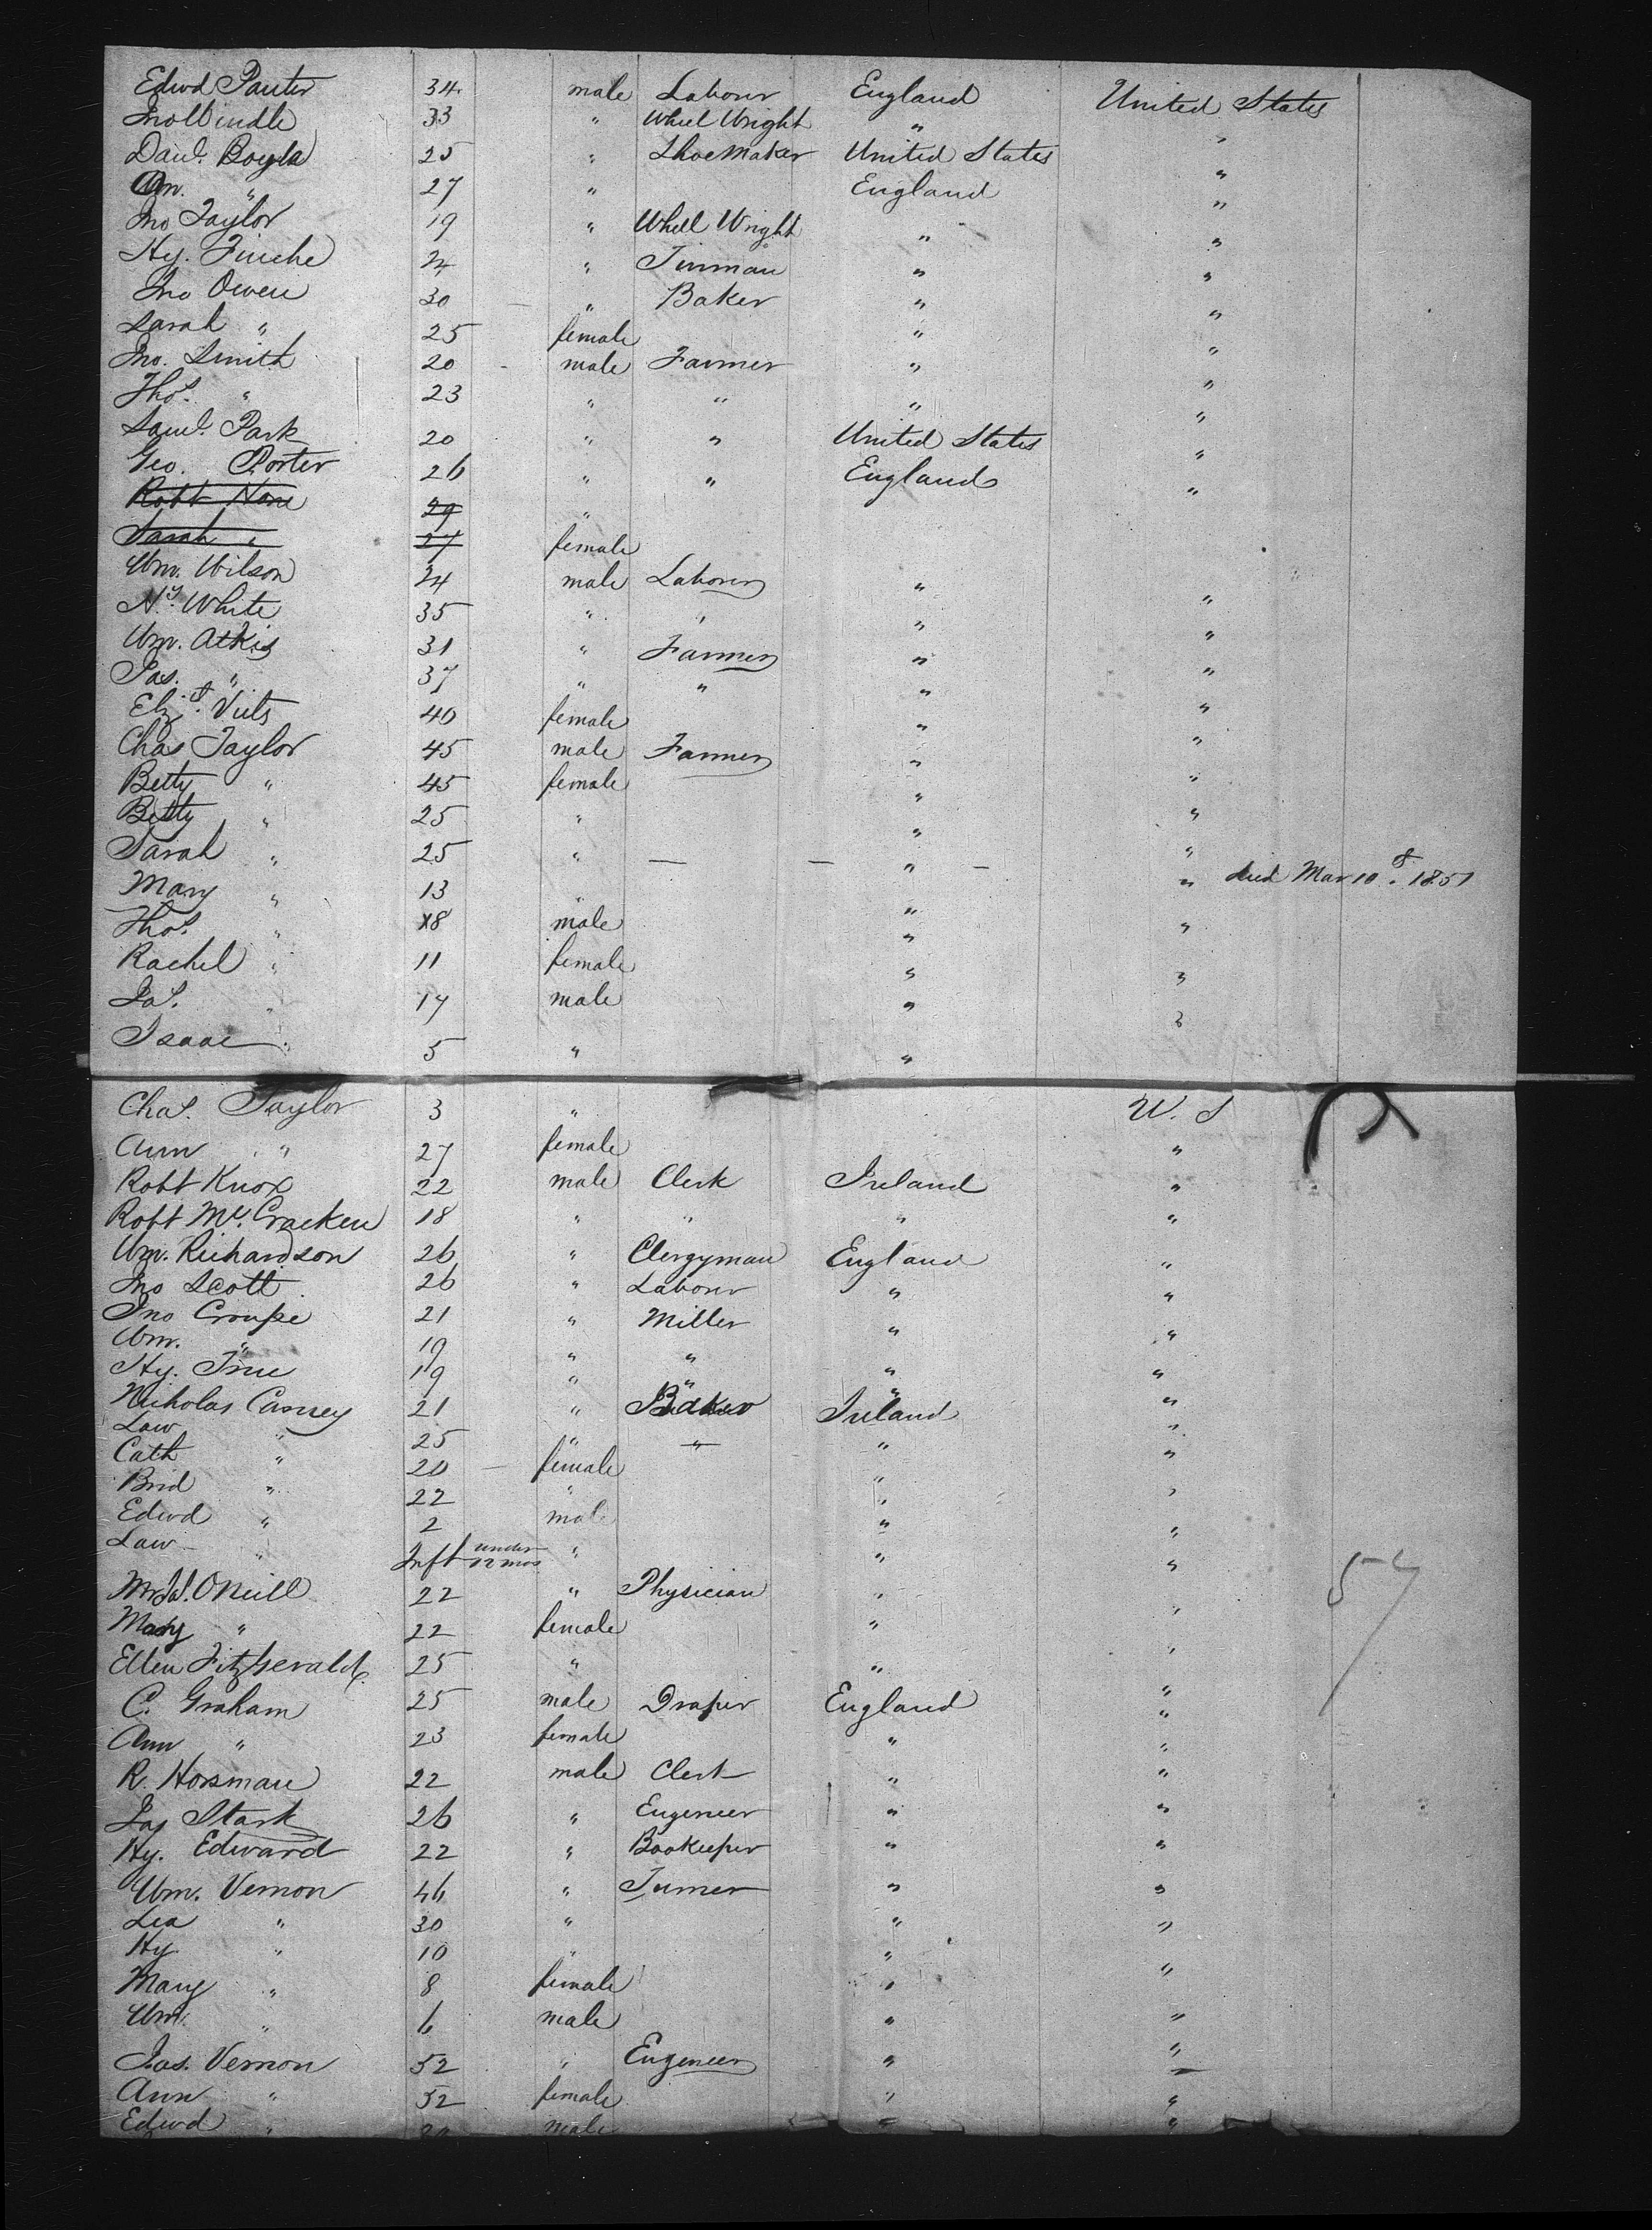 Edwd Pauter 34 male Laborer England United States
Jno Windle 33 " Wheel Wright " "
Danl. Boyle 25 " Shoe Maker United States "
Wm. " 27 " England "
Jno Taylor 19 " Whell Wright " "
Hy. Finche 24 " Tinman " "
Jno Owen 30 " Baker " "
Sarah " 25 female " "
Jno. Smith 20 male Farmer " "
Thos. " 23 " " " "
Saml. Park 20 " " United States "
Geo. Porter 26 " " England "
Robt 29 "
Sarah " 27 female
Wm. Wilson 24 male Laborer " "
Hy. White 35 " " " "
Wm. Atkis 31 " Farmer " "
Jas. " 37 " " " "
Elizth. Viets 40 female " "
Chas Taylor 45 male Farmer " "
Betty " 45 female " "
Betty " 25 " " "
Sarah " 25 " — — " — "
Mary " 13 " " " died Mar 10th. 1851
Thos. " 18 male " "
Rachel " 11 female " "
Jas. " 17 male " "
Isaac " 5 " "
Chas. Taylor 3 " U. S
Ann " 27 female "
Robt Knox 22 male Clerk Ireland "
Robt Mc. Cracken 18 " " " "
Wm. Richardson 26 " Clergyman England "
Jno Scott 26 " Laborer " "
Jno Croupe 21 " Miller " "
Wm. " 19 " " " "
Hy. True 19 " " " "
Nicholas Casney 21 " Baker Ireland "
Law " 25 " " " "
Cath " 20 female " "
Brid " 22 " " "
Edwd " 2 male " "
Law " Inft under 12 mos " " "
Jas. ONeill 22 " Physician " "
Mary " 22 female " "
Ellen FitzGerald 25 " " "
C. Graham 25 male Draper England "
Ann " 23 female " "
R. Horsman 22 male Clerk " "
Jas Stark 26 " Engeneer " "
Hy. Edward 22 " Bookeeper " "
Wm. Vernon 46 " Turner " "
Lea " 30 " " "
Hy " 10 " " "
Mary " 8 female " "
Wm. " 6 male " "
Jas. Vernon 52 " Engeneer " "
Ann " 52 female " "
Edwd " male " "
57